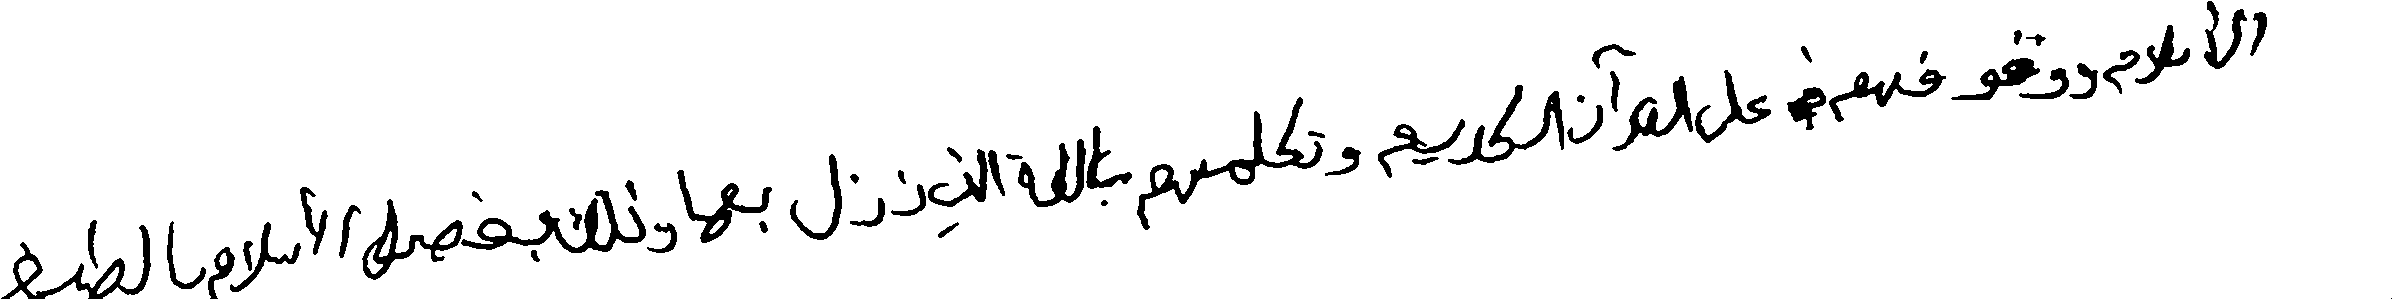 الأسلام ووقوفهم على القرآن الكريم وتكلمهم باللغة الذي نزل بها وذلك بفضل الأسلام بالطبع